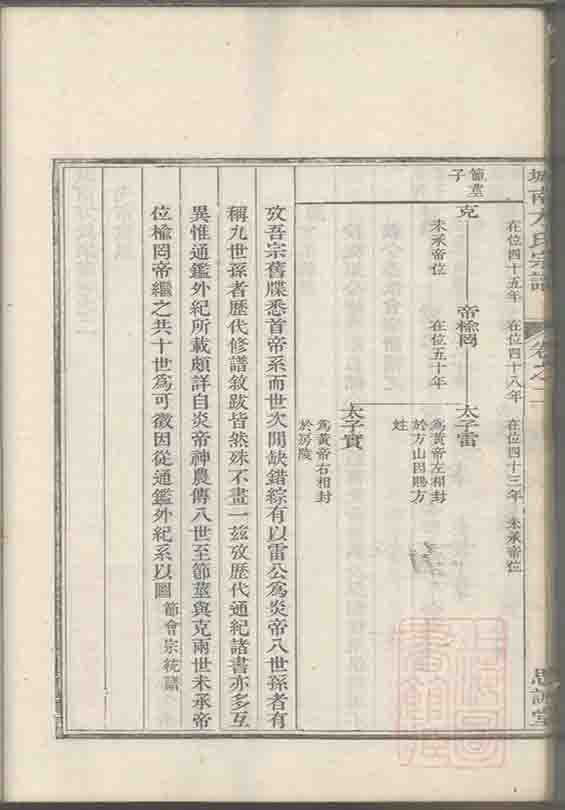 城南方氏宗譜 卷之一 思訓堂
在位四十五年 在位四十八年 在位四十三年 未承帝位
節莖子
克 帝榆罔 太子雷
未承帝位 在位五十年 為黃帝左相封
於方山因賜方
姓
太子實
為黃帝右相封
於房陵
攷吾宗舊牒悉首帝系而世次閒缺錯綜有以雷公為炎帝八世孫者有
稱九世孫者歷代修譜敘跋皆然殊不畫一茲攷歷代通紀諸書亦多互
異惟通鑑外紀所載頗詳自炎帝神農傳八世至節莖與克兩世未承帝
位榆罔帝繼之共十世為可徵因從通鑑外紀系以圖 節會宗統譜